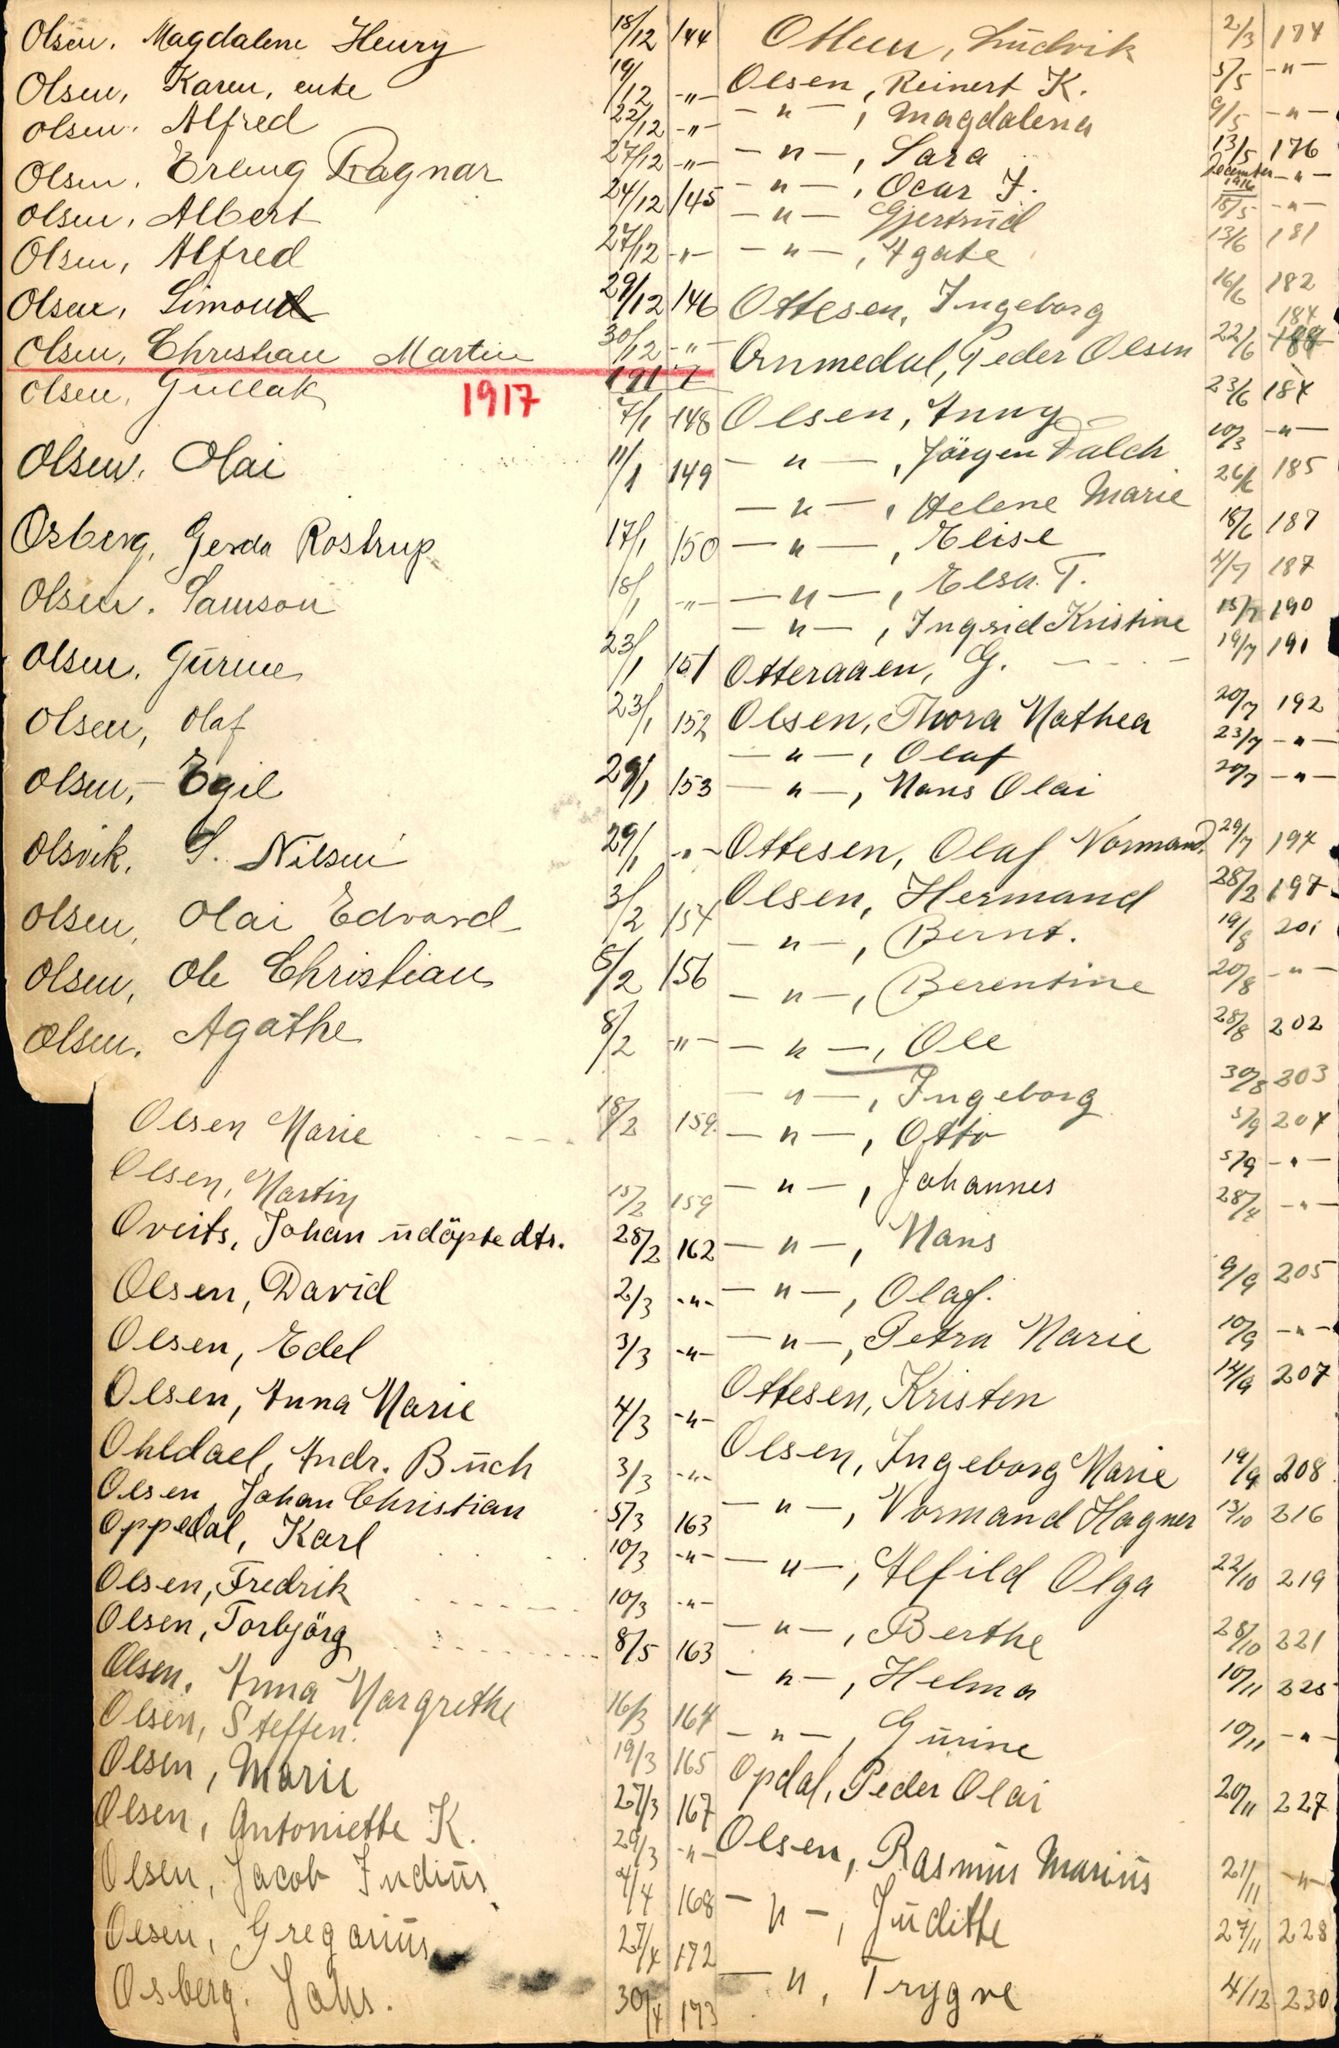 Olsen, Magdalene Henry 18/12 144
Olsen, Karen, enke 19/12 -"-
Olsen, Alfred 22/12 -"-
Olsen, Erling Ragnar 27/12 -"-
Olsen, Albert 24/12 145
Olsen, Alfred 27/12 -"-
Olsen, Simon 29/12 146
Olsen, Christian Martin 30/12 -"-
1917
1917
Olsen, Gullak 7/1 148
Olsen, Olai 11/1 149
Osberg, Gerda Rostrup 17/1 150
Olsen, Samson 18/1 -"-
Olsen, Gurine 23/1 151
Olsen, Olaf 23/1 152
Olsen, - Egil 29/1 153
Olsvik, S. Nilsen 29/1 -"-
Olsen, Olai Edvard 3/2 154
Olsen, Ole Christian 5/2 156
Olsen, Agathe 8/2 -"-
Olsen Marie 18/2 159
Olsen, Martin 15/2 159
Oveits, Johan udöpte dtr. 28/2 162
Olsen, David 2/3 -"-
Olsen, Edel 3/3 -"-
Olsen, Anna Marie 4/3 -"-
Ohldael, Andr. Buch 3/3 -"-
Olsen Johan Christian 5/3 163
Oppedal, Karl 10/3 -"-
Olsen, Fredrik 10/3 -"-
Olsen, Torbjörg 8/5 163
Olsen, Anna Margrethe 16/3 164
Olsen, Steffen. 19/3 165
Olsen, Marie 27/3 167
Olsen, Antoniette K. 29/3 -"-
Olsen, Jacob Indius 4/4 168
Olsen, Gregarius 27/4 172
Osberg. Johs. 30/4 173
Ludvik 2/3 174
Olsen, Reinert K. 5/5 -"-
-"-, Magdalena 9/5 -"-
-"-, Sara 13/5 176
-"-, Ocar J. December 1916 -"-
-"- Gjertrud 18/5 -"-
-"-, Agate 13/6 181
Ottesen, Ingeborg 16/6 182
Ornmedal, Peder Olsen 22/6 184
Olsen, Anny 23/6 184
-"-, Jörgen Falch 10/3 -"-
-"-, Helene Marie 26/6 185
-"-, Elise 18/6 187
-"-, Elsa T. 4/7 187
-"-, Ingrid Kristine 15/7 190
Otteraaen, G. 19/7 191
Olsen, Thora Mathea 20/7 192
-"-, Olaf 23/7 -"-
-"-, Hans Olai 20/7 -"-
Ottesen, Olaf Normand. 29/7 194
Olsen, Hermand 28/2 197
-"-, Bernt. 19/8 201
-"-, Berentine 20/8 -"-
-"-, Ole 28/8 202
-"-, Ingeborg 30/8 203
-"-, Otto 5/9 204
-"-, Johannes 5/9 -"-
-"-, Hans 28/4 -"-
-"-, Olaf. 9/9 205
-"-, Petra Marie 10/9 -"-
Ottesen, Kristen 14/9 207
Olsen, Ingeborg Marie 19/9 208
-"-, Normand Hagner 13/10 216
-"-, Alfild Olga 22/10 219
-"-, Berthe 28/10 221
-"-, Helma 10/11 225
-"-, Gurine 10/11 -"-
Opdal, Peder Olai 20/11 227
Olsen, Rasmus Marius 21/11 -"-
-"-, Juditte 27/11 228
-", Trygve 4/12 230